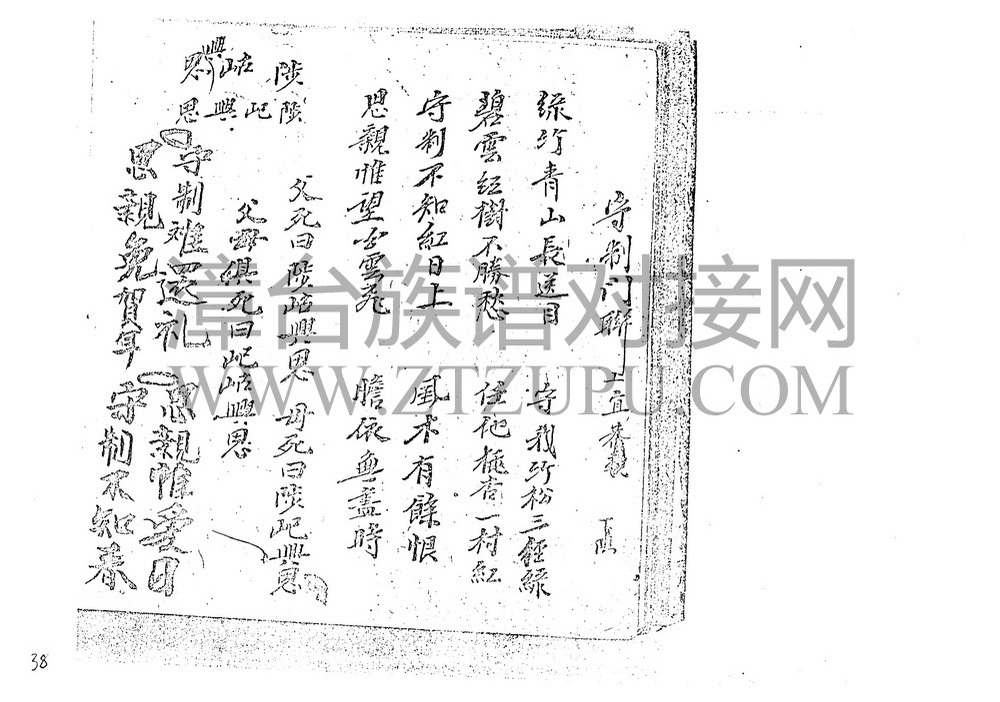 守制門聯 上宜
綠竹青山長送目 守我竹松三徑綠
碧雲紅樹不勝愁 任他桃杏一村紅
守制不知紅日上 風木有餘恨
思親惟望白雲飛 瞻依無盡時
父死曰陟岵興思 母死曰陟屺興思
父母俱死曰屺岵興思
陟岵興思
陟屺興思
守制难還礼 思親惟愛日
思親免賀年 守制不知春
漳台族谱对接网
WWW.ZTZUPU.COM
38